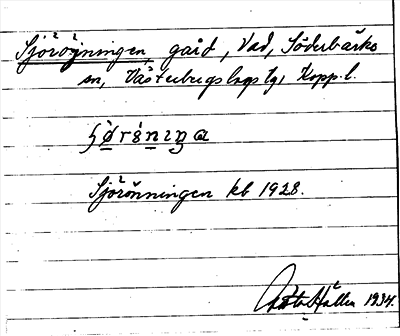 Sjöröjningen, gård, Vad, Söderbärke
sn, Västerbergslags tg, Kopp. l.
Sjörönningen kb 1928.
1934.